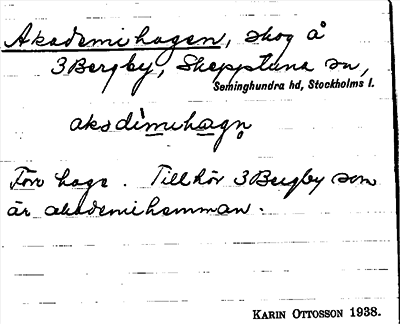 Akademihagen, skog å
3 Bergby, Skepptuna sn,
Seminghundra hd, Stockholms l.
aksdimihagn
Förr hage. Tillhör 3 Bergby som
är akademihemman.
KARIN OTTOSSON 1938.